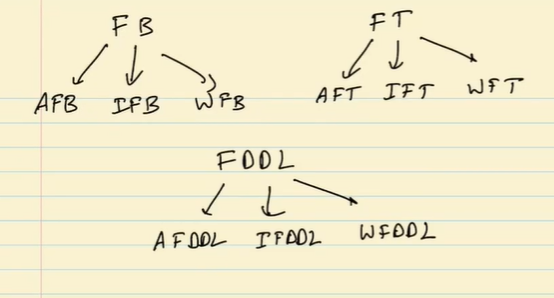 FB FT
AFB IFB WFB AFT IFT WFT
FDDL
AFDDL IFDDL WFDDL